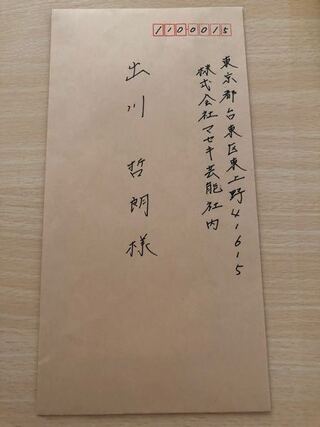 1100015
東京都台東区東上野4-6-5
株式会社マセキ芸能社内
出川 哲朗 様